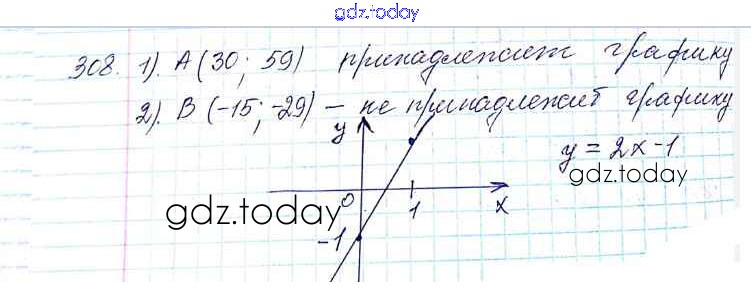 gdz.today
308. 1). А (30; 59) принадлежит графику
2). В (-15; -29) – не принадлежит графику
y
y = 2x-1
gdz.today
gdz.today
0
1
x
-1